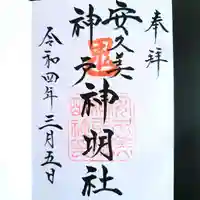 奉拝
安久美
神戸神明社
令和四年三月五日